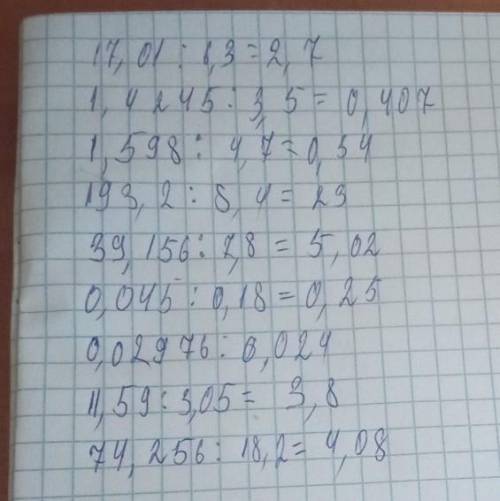 17,01 : 6,3 = 2,7
1,4245 : 3,5 = 0,407
1,598 : 4,7 = 0,34
193,2 : 8,4 = 23
39,156 : 7,8 = 5,02
0,045 : 0,18 = 0,25
0,02976 : 0,024
11,59 : 3,05 = 3,8
74,256 : 18,2 = 4,08